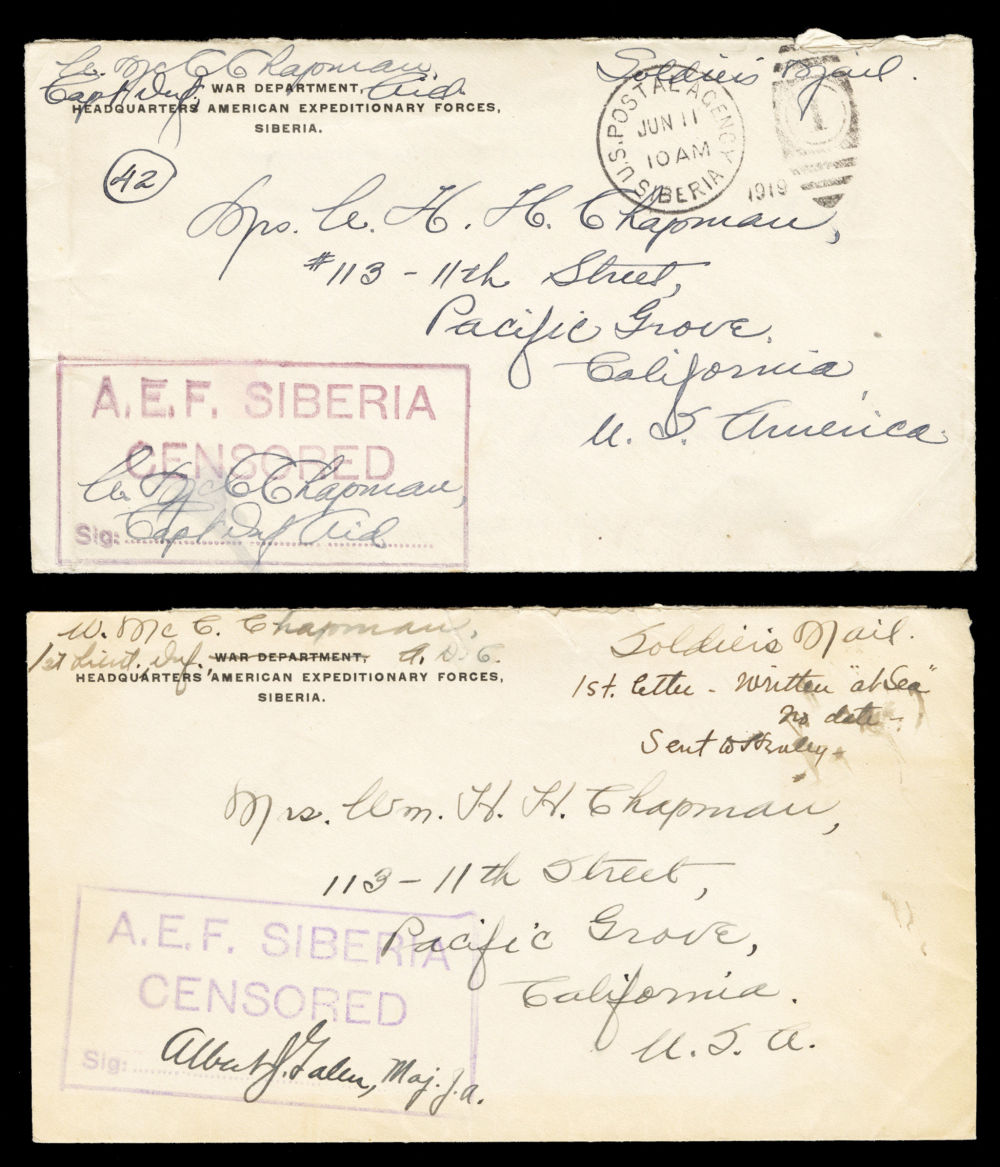 W. McC Chapman,
Soldier's Mail.
Capt Inf. WAR DEPARTMENT, Aid
HEADQUARTERS AMERICAN EXPEDITIONARY FORCES,
SIBERIA.
U.S. POSTAL AGENCY
JUN 11
10 AM
SIBERIA
1919
1
42
Mrs. W. H. H. Chapman,
#113 - 11th Street,
Pacific Grove,
California
U. S. America.
A.E.F. SIBERIA
CENSORED
W. McC Chapman,
Sig: Capt Inf Aid
W. Mc C. Chapman,
Soldier's Mail.
1st Lieut. Inf. WAR DEPARTMENT, A. D. C.
HEADQUARTERS, AMERICAN EXPEDITIONARY FORCES,
SIBERIA.
1st. letter - Written "at Sea"
No date -
Sent to
Mrs. Wm. H. H. Chapman,
113 - 11th Street,
Pacific Grove,
California.
U. S. A.
A.E.F. SIBERIA
CENSORED
Sig: Albert J. Galen, Maj. J.A.